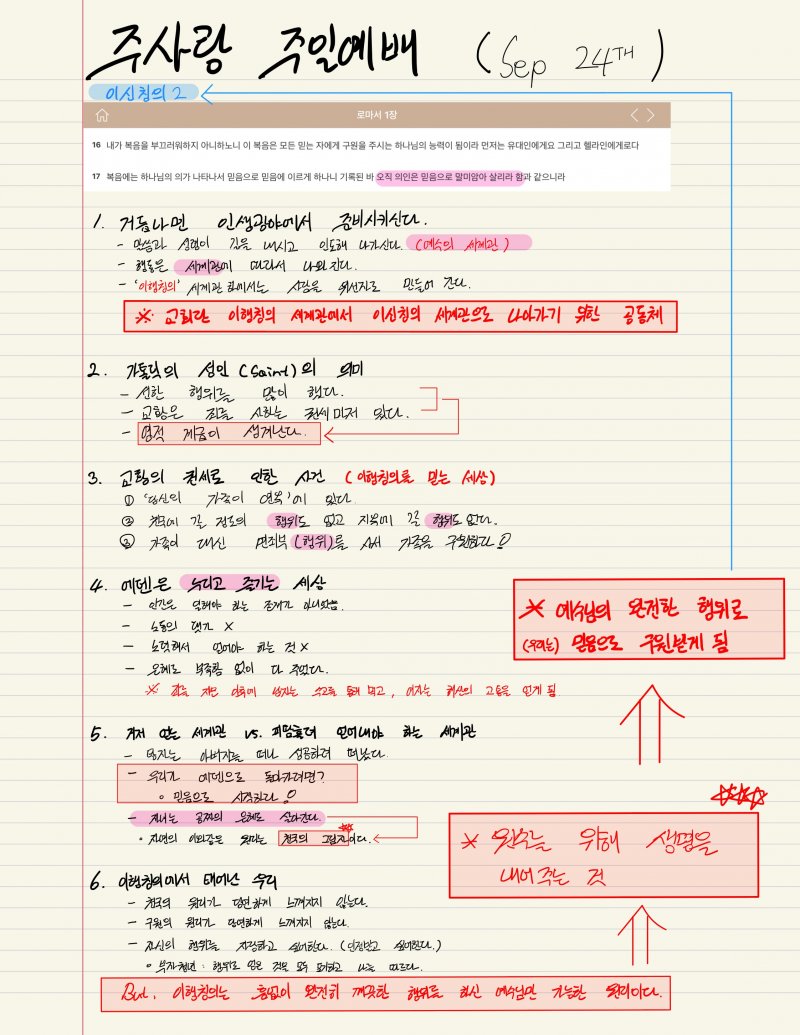 주사랑 주일예배 (Sep 24TH)
이신칭의 2
로마서 1장
16 내가 복음을 부끄러워하지 아니하노니 이 복음은 모든 믿는 자에게 구원을 주시는 하나님의 능력이 됨이라 먼저는 유대인에게요 그리고 헬라인에게로다
17 복음에는 하나님의 의가 나타나서 믿음으로 믿음에 이르게 하나니 기록된 바 오직 의인은 믿음으로 말미암아 살리라 함과 같으니라
1. 거듭나면 인생광야에서 준비시키신다.
- 말씀과 성령이 길을 내시고 인도해 나가신다. (예수의 세계관)
- 행동은 세계관에 따라서 나와진다.
- '이행칭의' 세계관 하에서는 사람을 위선자로 만들어 간다.
※ 교회란 이행칭의 세계관에서 이신칭의 세계관으로 나아가기 위한 공동체
2. 가톨릭의 성인(Saint)의 의미
- 선한 행위를 많이 했다.
- 교황은 죄를 사하는 권세까지 있다.
- 영적 계급이 생겨난다.
3. 교황의 권세로 인한 사건 (이행칭의로 믿는 세상)
① '당신의 가족이 연옥'에 있다.
② 천국에 갈 정도의 행위도 없고 지옥에 갈 행위도 없다.
③ 가족이 대신 면죄부(행위)를 사서 가족을 구원하라!
4. 에덴은 누리고 즐기는 세상
- 인간은 일해야 하는 존재가 아니었음.
- 노동의 댓가 X
- 노력해서 얻어야 하는 것 X
- 은혜로 부족함 없이 다 주었다.
※ 죄를 지은 이후에 남자는 수고를 통해 먹고, 여자는 해산의 고통을 얻게 됨
※ 예수님의 완전한 행위로
(우리는) 믿음으로 구원받게 됨
5. 거저 얻는 세계관 vs. 피땀흘려 얻어내야 하는 세계관
- 탕자는 아버지를 떠나 성공하려 떠났다.
- 우리가 에덴으로 돌아가려면?
• 믿음으로 시작하라!
- 자녀는 공짜의 은혜로 살아간다.
• 자연의 아름다운 원리는 천국의 그림자이다.
※ 원수를 위해 생명을
내어 주는 것
6. 이행칭의에서 태어난 우리
- 천국의 원리가 당연하게 느껴지지 않는다.
- 구원의 원리가 당연하게 느껴지지 않는다.
- 자신의 행위를 자랑하고 싶어한다. (인정받고 싶어한다.)
• 부자청년 : 행위로 얻은 것을 모두 포기하고 나를 따르라.
But, 이행칭의는 흠없이 완전히 깨끗한 행위를 하신 예수님만 가능한 원리이다.